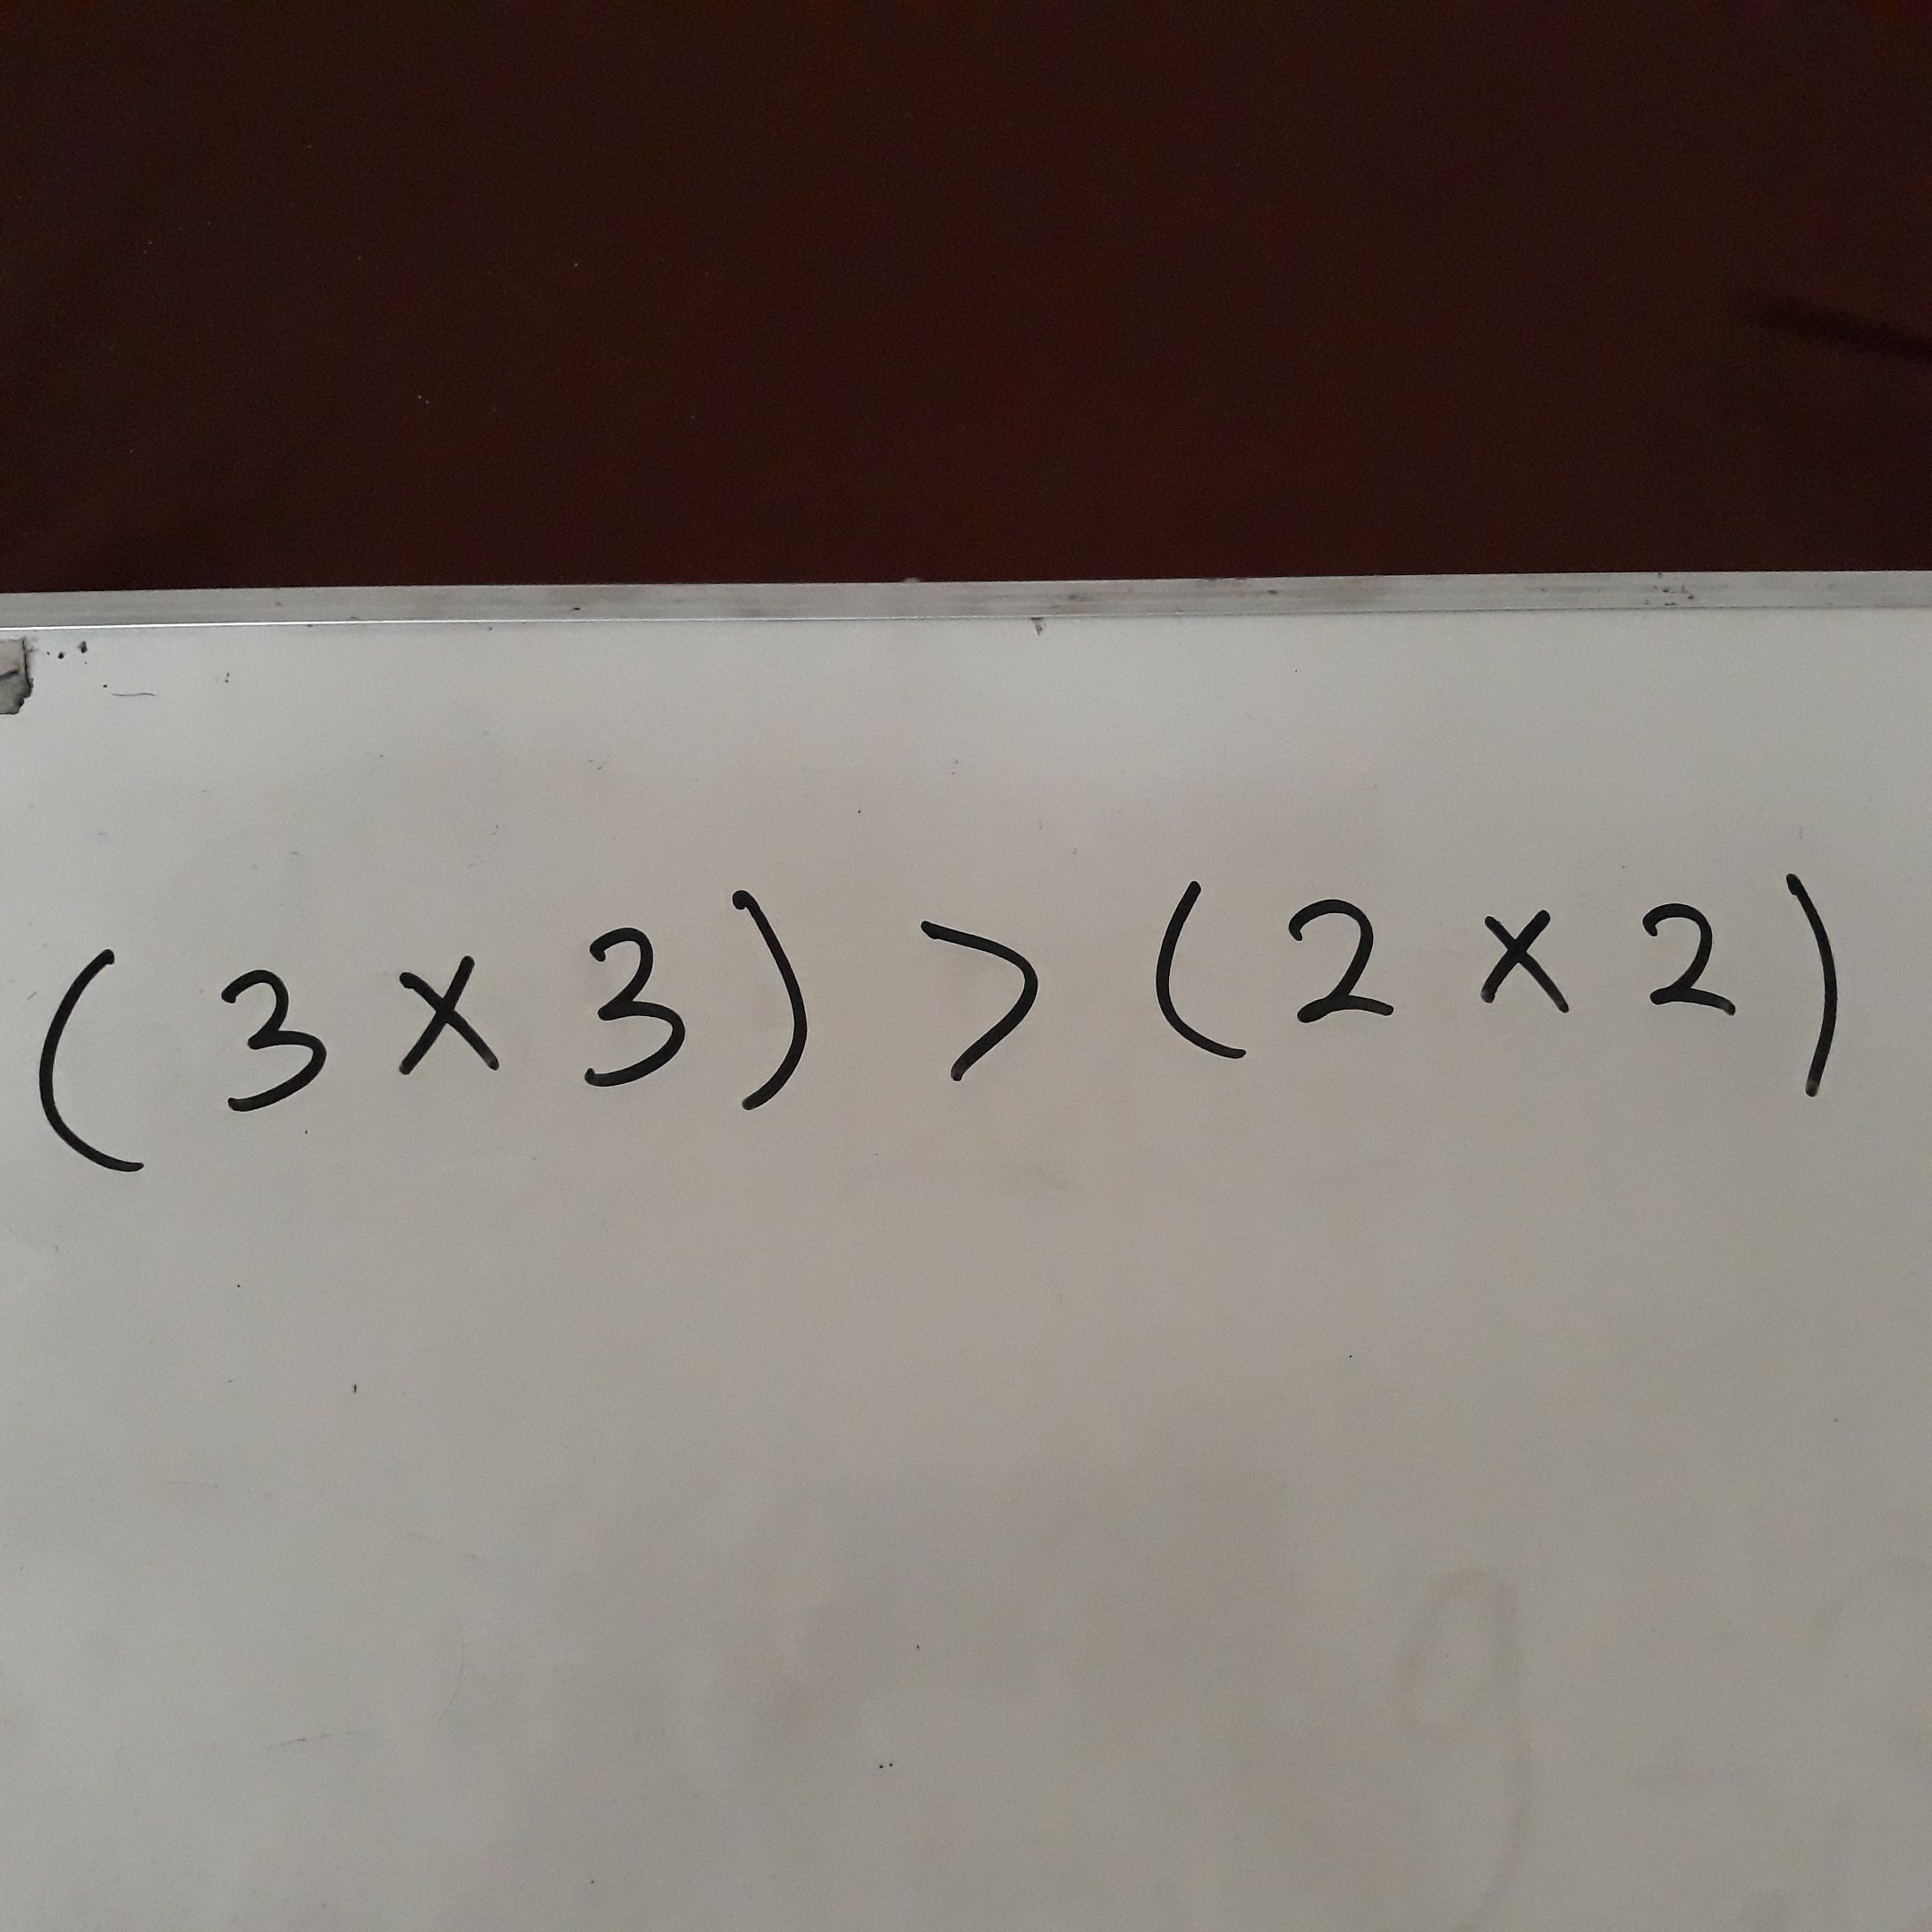 ( 3 × 3 ) > ( 2 × 2 )